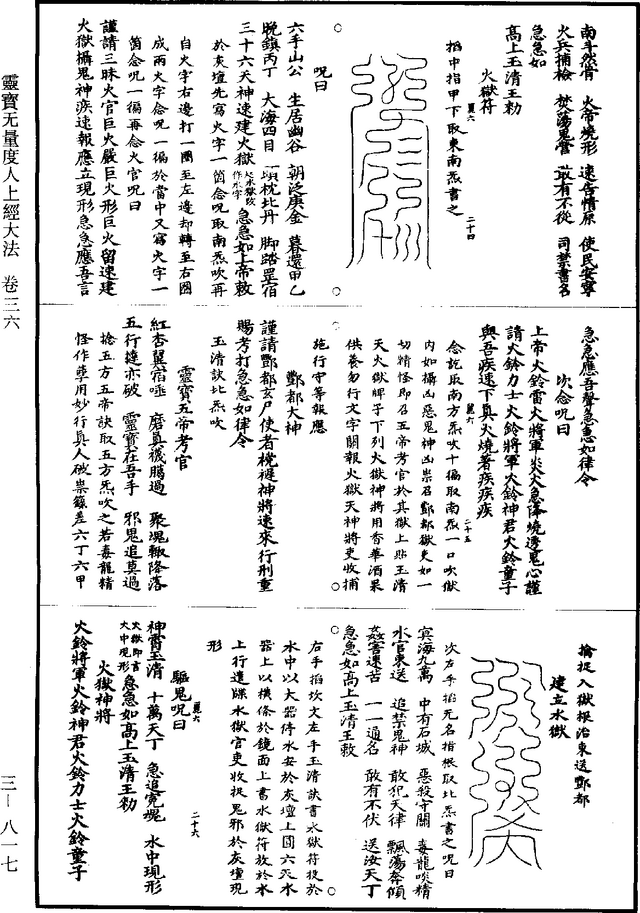 南斗煞管　火帝燒形　速告情原　使民安寧
火兵捕檢　焚蕩鬼營　敢有不從　司禁書名
急急如
高上玉清王勑
火獄符
掐中指甲下取東南炁書之
二十四
咒曰
六手山公　生居幽谷　朝泛庚金　暮還甲乙
晚鎮丙丁　大海四目　頭枕北丹　脚踏罡宿
三十六天神速建火獄 急急如上帝敕
於灰壇先寫火字一箇念呪取南炁吹再
自火字右邊打一圈至左邊却轉至右圈
成兩火字念呪一徧於當中又寫火字一
箇念呪一徧再念火官呪曰
謹請三昧火官巨火嚴巨火形巨火留速建
火獄攝鬼神疾速報應立現形急急應吾言
急急應吾聲急急如律令
次念呪曰
上帝火鈴雷火將軍炎火急降燒透鬼心謹
請火鈴力士火鈴將軍火鈴神君火鈴童子
與吾疾速下真火燒著疾疾疾
二十五
念訖取南方炁吹十徧取南炁一口吹獄
內如攝凶惡鬼神凶祟召酆都獄吏如一
切精怪即召五帝考官於其獄上貼玉清
天火獄牌子下列火獄神將用香華酒果
供養勿行文字關報火獄天神將吏收捕
施行守等報應
酆都大神
謹請酆都玄尸使者 神將速來行刑重
賜考打急急如律令
玉清訣北炁吹
靈寶五帝考官
五行撻亦破　靈寶在吾手　邪鬼追莫過
捻五方五帝訣取五方炁吹之若毒龍精
怪作孽用妙行真人破祟籙差六丁六甲
擒捉入獄根治東送酆都
建立水獄
次左手掐无名指根取北炁書之呪曰
冥海九萬　中有石城　惡殺守關　毒龍啖精
水官東送　追禁鬼神　敢犯天律　飄蕩奔傾
姦害速苦　一一通名　敢有不伏　送汝天丁
急急如高上玉清王敕
右手掐坎文左手玉清訣書水獄符投於
水中以大器停水安於灰壇上圓六天水
器上以橫條於鏡面上書水獄符放於水
上行遣牒水獄官吏收捉鬼邪於灰壇現
形
二十六
驅鬼呪曰
神霄玉清　十萬天丁　急追冤魂　水中現形
火獄即言火中現形 急急如高上玉清王勑
火獄神將
火鈴將軍火鈴神君火鈴力士火鈴童子
靈寶无量度人上經大法　卷三六
三—八一七